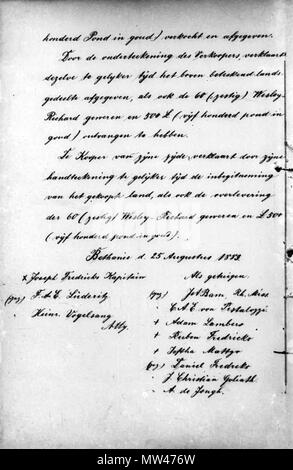 honderd Pond in goud) verkocht en afgegeven.
Door de onderteekening des Verkoopers, verklaart
dezelve te gelyker tijd het boven beteekend lands-
gedeelte afgegeven, als ook de 60 (zestig) Wesley-
Richard geweren en 500 £ (vijf honderd pond in
goud) ontvangen te hebben.
De Kooper van zijne zijde verklaart door zijne
handteekening te gelyker tijd de inbezitneming
van het gekogt land, als ook de overlevering
der 60 (zestig) Wesley-Richard geweren en £ 500
(vijf honderd pond in goud).
Bethanie d. 25 Augustus 1883
x Joseph Fredericks Kapitain
F. A. E. Lüderitz
Heinr. Vogelsang
Als getuigen.
Joh Bam Rh. Miss.
C. A. E. von Pestalozzi
+ Adam Lambers
+ Ruben Fredricks
+ Daniel Fredriks
J Christian Goliath
A. de Jongh.
a0
alamy
Image ID: MW476W
www.alamy.com